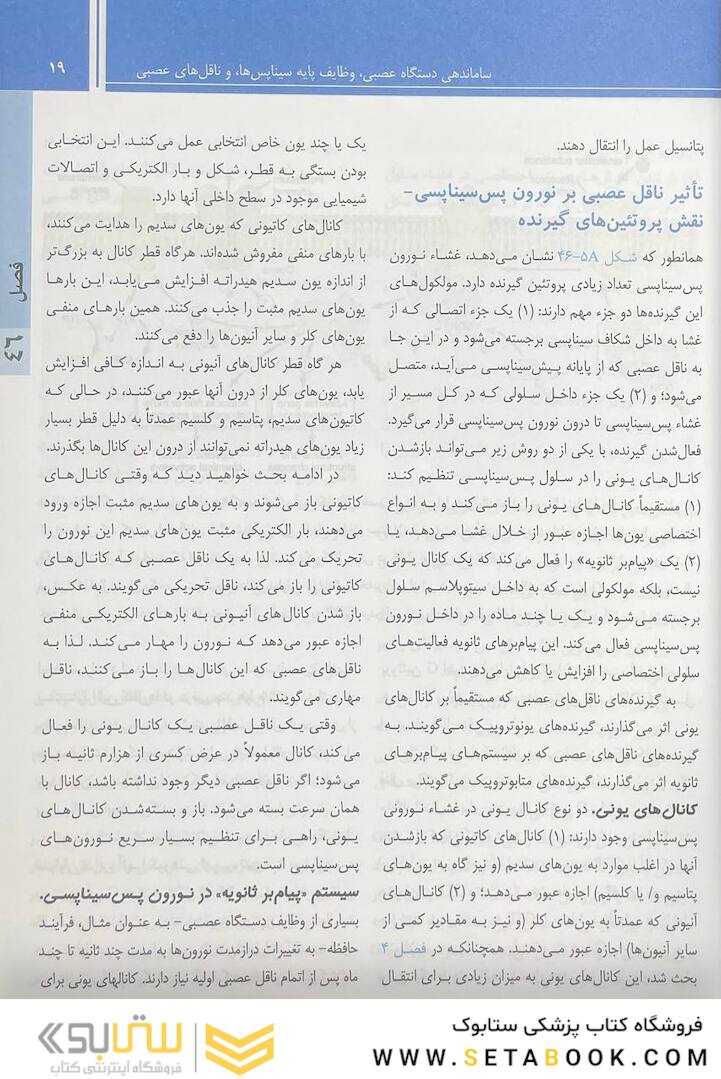 ساماندهی دستگاه عصبی، وظایف پایه سیناپس‌ها، و ناقل‌های عصبی
۱۹
پتانسیل عمل را انتقال دهند.
تأثیر ناقل عصبی بر نورون پس‌سیناپسی–
نقش پروتئین‌های گیرنده
همانطور که شکل ۴۶-۵A نشان می‌دهد، غشاء نورون
پس‌سیناپسی تعداد زیادی پروتئین گیرنده دارد. مولکول‌های
این گیرنده‌ها دو جزء مهم دارند: (۱) یک جزء اتصالی که از
غشا به داخل شکاف سیناپسی برجسته می‌شود و در این جا
به ناقل عصبی که از پایانه پیش‌سیناپسی می‌آید، متصل
می‌شود؛ و (۲) یک جزء داخل سلولی که در کل مسیر از
غشاء پس‌سیناپسی تا درون نورون پس‌سیناپسی قرار می‌گیرد.
فعال‌شدن گیرنده، با یکی از دو روش زیر می‌تواند بازشدن
کانال‌های یونی را در سلول پس‌سیناپسی تنظیم کند:
(۱) مستقیماً کانال‌های یونی را باز می‌کند و به انواع
اختصاصی یون‌ها اجازه عبور از خلال غشا می‌دهد، یا
(۲) یک «پیام‌بر ثانویه» را فعال می‌کند که یک کانال یونی
نیست، بلکه مولکولی است که به داخل سیتوپلاسم سلول
برجسته می‌شود و یک یا چند ماده را در داخل نورون
پس‌سیناپسی فعال می‌کند. این پیام‌برهای ثانویه فعالیت‌های
سلولی اختصاصی را افزایش یا کاهش می‌دهند.
به گیرنده‌های ناقل‌های عصبی که مستقیماً بر کانال‌های
یونی اثر می‌گذارند، گیرنده‌های یونوتروپیک می‌گویند، به
گیرنده‌های ناقل‌های عصبی که بر سیستم‌های پیام‌برهای
ثانویه اثر می‌گذارند، گیرنده‌های متابوتروپیک می‌گویند.
کانال‌های یونی. دو نوع کانال یونی در غشاء نورونی
پس‌سیناپسی وجود دارند: (۱) کانال‌های کاتیونی که بازشدن
آنها در اغلب موارد به یون‌های سدیم (و نیز گاه به یون‌های
پتاسیم و/ یا کلسیم) اجازه عبور می‌دهد؛ و (۲) کانال‌های
آنیونی که عمدتاً به یون‌های کلر (و نیز به مقادیر کمی از
سایر آنیون‌ها) اجازه عبور می‌دهند. همچنانکه در فصل ۴
بحث شد، این کانال‌های یونی به میزان زیادی برای انتقال
یک یا چند یون خاص انتخابی عمل می‌کنند. این انتخابی
بودن بستگی به قطر، شکل و بار الکتریکی و اتصالات
شیمیایی موجود در سطح داخلی آنها دارد.
کانال‌های کاتیونی که یون‌های سدیم را هدایت می‌کنند،
با بارهای منفی مفروش شده‌اند. هرگاه قطر کانال به بزرگ‌تر
از اندازه یون سدیم هیدراته افزایش می‌یابد، این بارها
یون‌های سدیم مثبت را جذب می‌کنند. همین بارهای منفی
یون‌های کلر و سایر آنیون‌ها را دفع می‌کنند.
هر گاه قطر کانال‌های آنیونی به اندازه کافی افزایش
یابد، یون‌های کلر از درون آنها عبور می‌کنند، در حالی که
کاتیون‌های سدیم، پتاسیم و کلسیم عمدتاً به دلیل قطر بسیار
زیاد یون‌های هیدراته نمی‌توانند از درون این کانال‌ها بگذرند.
در ادامه بحث خواهید دید که وقتی کانال‌های
کاتیونی باز می‌شوند و به یون‌های سدیم مثبت اجازه ورود
می‌دهند، بار الکتریکی مثبت یون‌های سدیم این نورون را
تحریک می‌کند. لذا به یک ناقل عصبی که کانال‌های
کاتیونی را باز می‌کند، ناقل تحریکی می‌گویند. به عکس،
باز شدن کانال‌های آنیونی به بارهای الکتریکی منفی
اجازه عبور می‌دهد که نورون را مهار می‌کند. لذا به
ناقل‌های عصبی که این کانال‌ها را باز می‌کنند، ناقل
مهاری می‌گویند.
وقتی یک ناقل عصبی یک کانال یونی را فعال
می‌کند، کانال معمولاً در عرض کسری از هزارم ثانیه باز
می‌شود؛ اگر ناقل عصبی دیگر وجود نداشته باشد، کانال با
همان سرعت بسته می‌شود. باز و بسته‌شدن کانال‌های
یونی، راهی برای تنظیم بسیار سریع نورون‌های
پس‌سیناپسی است.
سیستم «پیام‌بر ثانویه» در نورون پس‌سیناپسی.
بسیاری از وظایف دستگاه عصبی– به عنوان مثال، فرآیند
حافظه– به تغییرات درازمدت نورون‌ها به مدت چند ثانیه تا چند
ماه پس از اتمام ناقل عصبی اولیه نیاز دارند. کانالهای یونی برای
فصل
۴۶
فروشگاه کتاب پزشکی ستابوک
WWW.SETABOOK.COM
ستابوک
فروشگاه اینترنتی کتاب